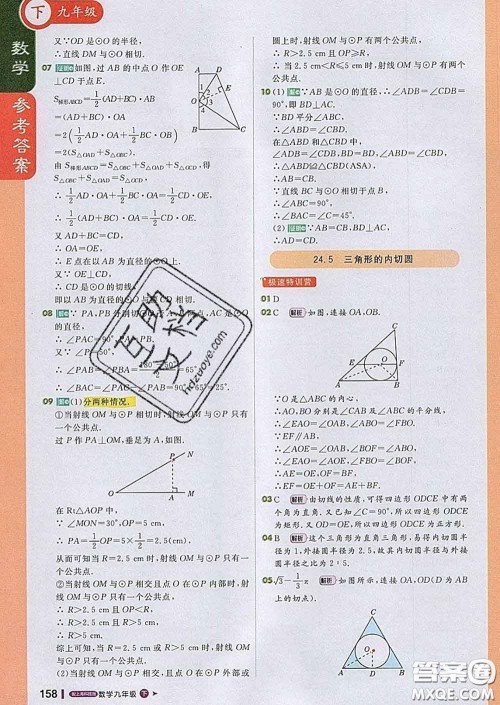 下 九年级
数学
参考答案
又∵OD是⊙O的半径,
∴直线DM与⊙O相切.
07 如图,过AB的中点O作OE
⊥CD于点E.
S梯形ABCD=1/2(AD+BC)·AB
=(AD+BC)·OA
=2(1/2AD·OA+1/2BC·OB)
=2(S△OAD+S△OBC).
由S梯形ABCD=S△OBC+S△OAD+S△OCD,得
S△OBC+S△OAD=S△OCD,
∴1/2AD·OA+1/2BC·OA=1/2CD·OE,
∴1/2(AD+BC)·OA=1/2CD·OE.
又AD+BC=CD,
∴OA=OE,
∴E点在以AB为直径的⊙O上.
又OE⊥CD,
∴CD是⊙O的切线,
即以AB为直径的圆与
08 ∵PA,PB分别切⊙
∴∠PAC=90°,PA=PB.
∴∠PAB=∠PBA=
∴∠BAC=∠PAC-∠PAB=90°-65°=25°.
09 (1)分两种情况.
①当射线OM与⊙P相切时,射线OM与⊙P只有
一个公共点.
过P作PA⊥OM,垂足为A,如图.
P
O A M
在Rt△AOP中,
∵∠MON=30°,OP=5 cm,
∴PA=1/2OP=1/2×5=2.5(cm).
从而可知当R=2.5 cm时,射线OM与⊙P只有一
个公共点.
②当射线OM与⊙P相交且点O在⊙P内部时,射
线OM与⊙P只有一个公共点.
∴R>2.5 cm且OP<R.
∴R>5 cm.
综上可知,当R=2.5 cm或R>5 cm时,射线OM与
⊙P只有一个公共点.
(2)当射线OM与⊙P相交且点O在⊙P外部或
158 配上海科技版 数学九年级 下
圆上时,射线OM与⊙P有两个公共点,
∴R>2.5 cm且OP≥R.
∴当2.5 cm<R≤5 cm时,射线OM与⊙P有两
个公共点.
10 (1)∵AB是⊙O的直径,∴∠ADB=
90°,即BD⊥AC.
∵BD平分∠ABC,
∴∠ABD=∠CBD.
在△ABD和△CBD中,
∠ABD=∠CBD,
BD=BD,
∠ADB=∠CDB,
∴△ABD≌△CBD(ASA).
∴AB=CB.
∵直线BC与⊙O相切于点B,
∴∠ABC=90°.
∴∠BAC=∠C=45°.
(2)∵AB=CB,BD⊥AC,
∴AD=CD.
24.5 三角形的内切圆
极速特训营
01 D
02 C 解析 如图,连接OA,OB.
C
E O F
A B
∵O是△ABC的内心,
∴AO,BO分别是∠CAB和∠CBA的平分线.
∴∠EAO=∠OAB,∠ABO=∠FBO.
∵EF∥AB,
∴∠AOE=∠OAB,∠BOF=∠ABO.
∴∠EAO=∠AOE,∠FBO=∠BOF.
∴AE=OE,OF=BF.
∴EF=OE+OF=AE+BF.
03 C 解析 由切线的性质,可得四边形ODCE中有两
个角为直角.又∠C=90°,所以四边形ODCE为矩
形.又OD=OE,所以四边形ODCE为正方形.
04 B 解析 这个三角形为直角三角形,易得内切圆半
径为1,外接圆半径为2.5,故其内切圆半径与外接
圆半径之比为2∶5.
05 √3-1/3π 解析 如图所示,连接OA,OD(D为AB
上的切点).
C
O
A D B
百助文档
hdzuoye.com
答案圈
MXQE.COM